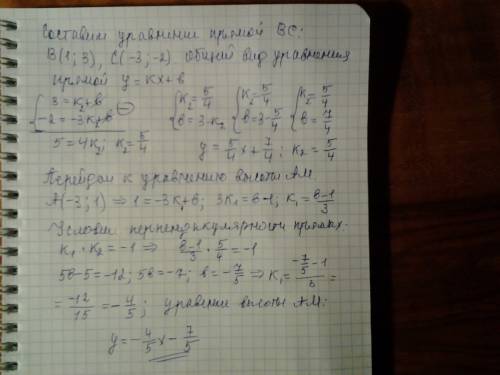 Составим уравнение прямой BC:
B(1; 3), C(-3; -2) общий вид уравнения
прямой y = kx + b
{ 3 = k₂ + b
{ -2 = -3k₂ + b ⊖
5 = 4k₂; k₂ = 5/4
{ k₂ = 5/4 { k₂ = 5/4 { k₂ = 5/4
{ b = 3 - k₂ { b = 3 - 5/4 { b = 7/4
y = 5/4 x + 7/4; k₂ = 5/4
Перейдём к уравнению высоты AM
A(-3; 1) ⇒ 1 = -3k₁ + b; 3k₁ = b - 1; k₁ = (b-1)/3
Условие перпендикулярности прямых:
k₁ · k₂ = -1 ⇒ (b-1)/3 · 5/4 = -1
5b - 5 = -12; 5b = -7; b = -7/5 ⇒ k₁ = (-7/5 - 1)/3 =
= -12/15 = -4/5; уравнение высоты AM:
y = -4/5 x - 7/5